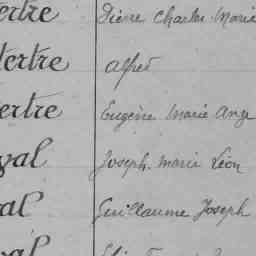 ertre Pierre Charles Marie
tertre Alfred
ertre Eugène Marie Ange
val Joseph. Marie Léon
al Guillaume Joseph
val